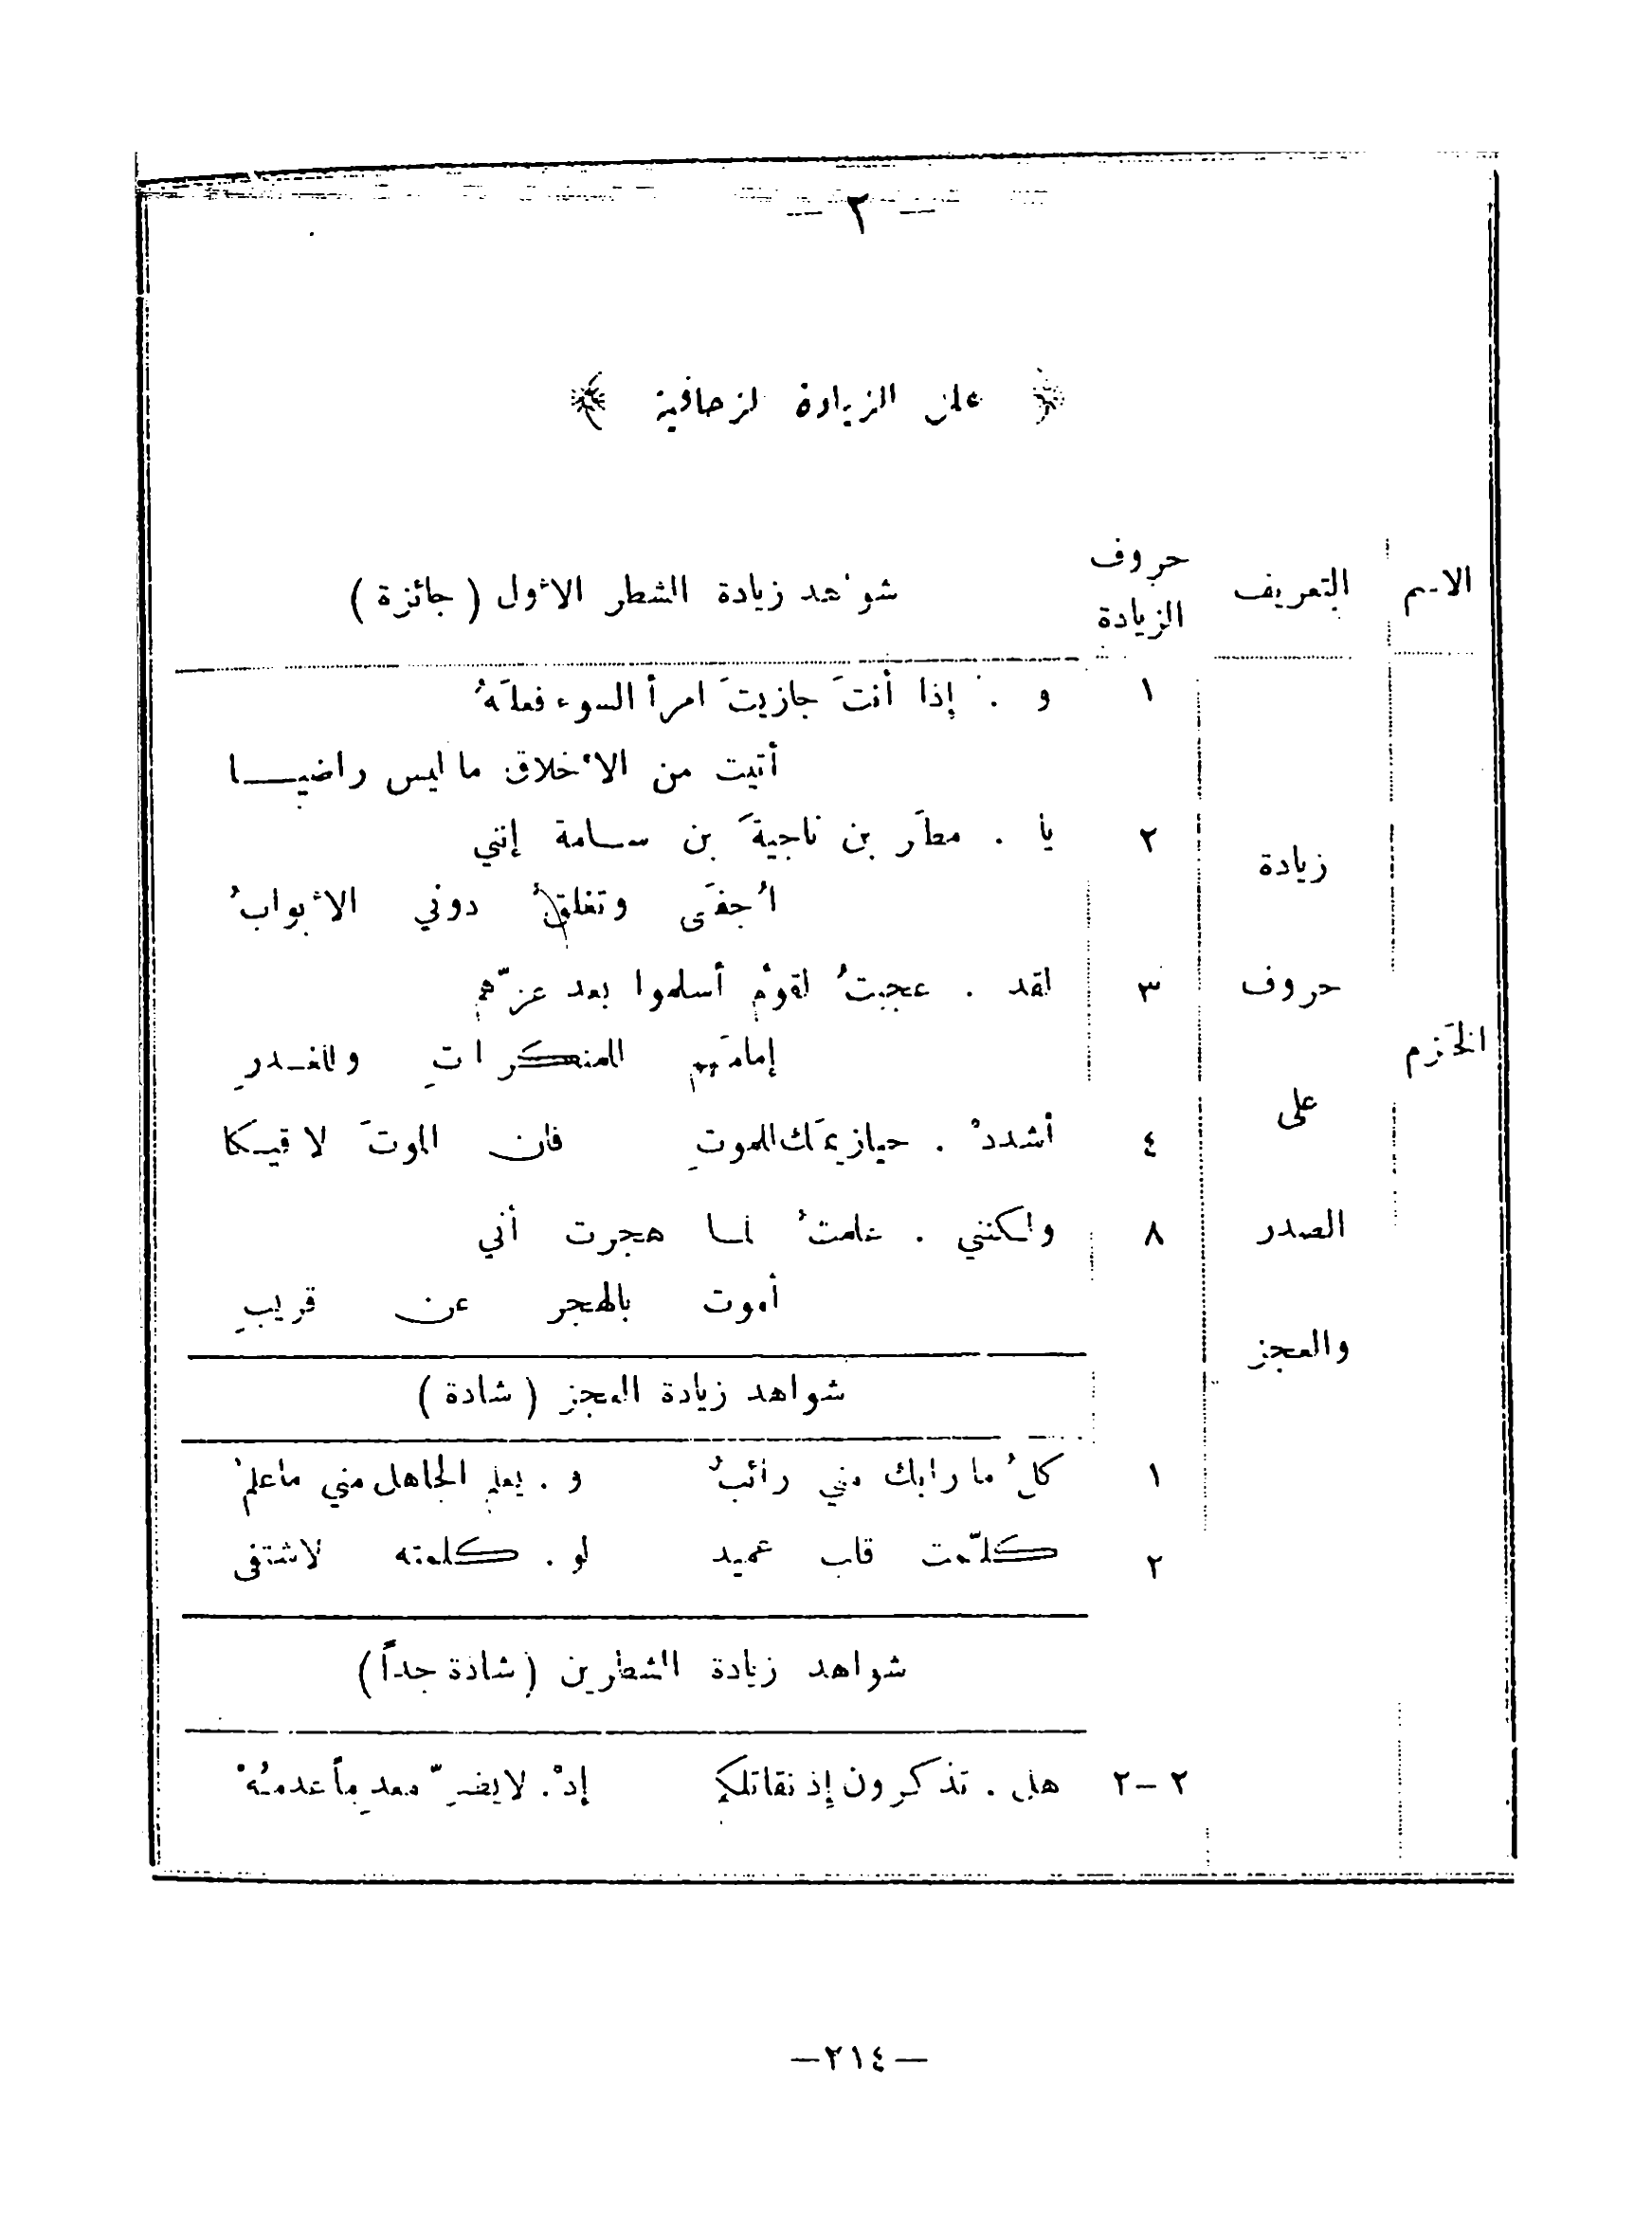 — ٢ —
﴿ علل الزيادة الزحافية ﴾
الاسم التعريف حروف الزيادة شواهد زيادة الشطر الأول ( جائزة )
١ و . إذا أنتَ جازيتَ امرأ السوء فعلَهُ
أتيت من الأخلاق ما ليس راضيـــا
٢ يا . مطَر بن ناجيةَ بن ســامة إنني
زيادة
أُجفَى وتغلقُ دوني الأبوابُ
حروف ٣ لقد . عجبتُ لقومٍ أسلموا بعد عزّهم
الخَزم
إمامَهم للمنكراتِ وللغــدرِ
على ٤ أشددْ . حيازيمَك للموتِ فان الموتَ لاقيـكا
الصدر ٨ ولكنني . علمتُ لمـا هجرت أني
أموت بالهجر عن قريبِ
والعجز
شواهد زيادة العجز ( شاذة )
١ كلُ ما رابك مني رائبٌ و . يعلم الجاهل مني ما علمْ
٢ كلّمت قلب عميد لو . كلمته لاشتفى
شواهد زيادة الشطرين ( شاذة جداً )
٢-٢ هل . تذكرون إذ نقاتلكم إذْ . لا يضرّ معدماً عدمُهْ
—٢١٤—